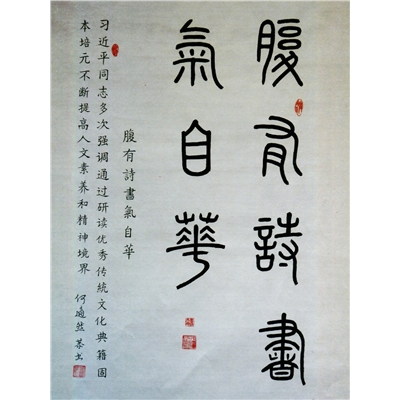 腹有詩書
氣自華
腹有詩書氣自華
习近平同志多次强调通过研读优秀传统文化典籍固
本培元不断提高人文素养和精神境界
何適然恭书